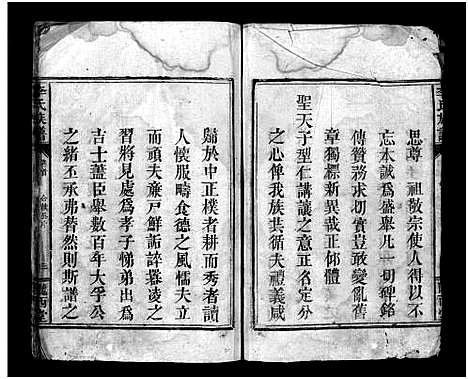 思尊　祖敬宗使人得以不
忘本誠爲盛舉凡一切碑銘
傳贊務求切實敢變亂舊
章獨標新異哉正仰體
聖天子型仁講讓之意正名定分
之心俾我族共循夫禮義咸
歸於中正樸者耕而秀者讀
人懷服疇食德之風懦夫立
而頑夫廉戸鮮詬誶暮凌之
習將見處爲孝子悌弟出爲
吉士藎臣舉數百年大孚公
之緒丕承弗替然則斯譜之
李氏族譜